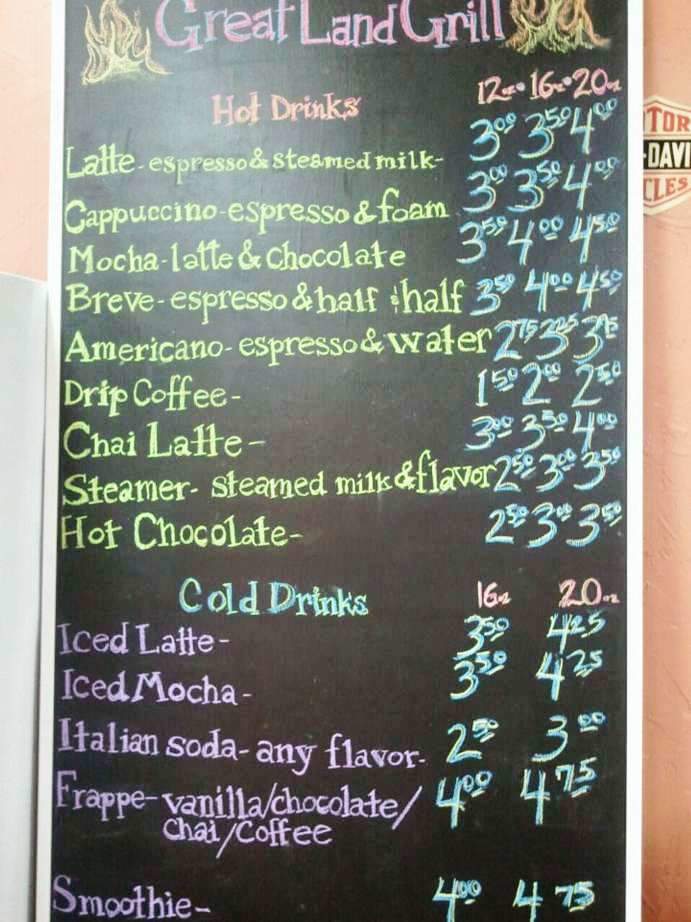 Great Land Grill
Hot Drinks 12oz 16oz 20oz
Latte - espresso & steamed milk - 3.00 3.50 4.00
Cappuccino - espresso & foam 3.00 3.50 4.00
Mocha - latte & chocolate 3.50 4.00 4.50
Breve - espresso & half & half 3.50 4.00 4.50
Americano - espresso & water 2.75 3.25 3.75
Drip Coffee - 1.50 2.00 2.50
Chai Latte - 3.00 3.50 4.00
Steamer - steamed milk & flavor 2.50 3.00 3.50
Hot Chocolate - 2.50 3.00 3.50
Cold Drinks 16oz 20oz
Iced Latte - 3.50 4.25
Iced Mocha - 3.50 4.25
Italian soda - any flavor - 2.50 3.00
Frappe - vanilla/chocolate/ 4.00 4.75
chai/coffee
Smoothie - 4.00 4.75
TOR
DAVI
CLES